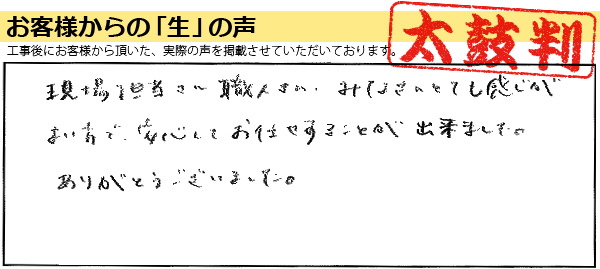 お客様からの「生」の声
太鼓判
工事後にお客様から頂いた、実際の声を掲載させていただいております。
現場担当さん、職人さん、みなさんとても感じが
よい方で、安心してお任せすることが出来ました。
ありがとうございました。